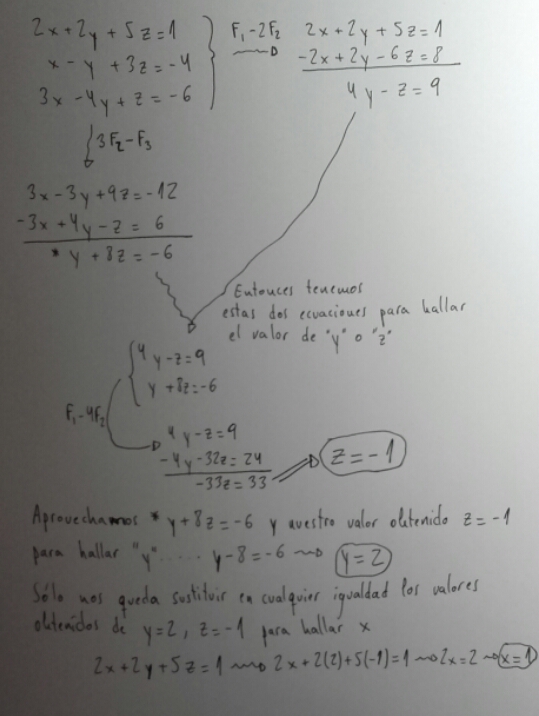 2x+2y+5z=1
x-y+3z=-4
3x-4y+z=-6
F₁-2F₂
2x+2y+5z=1
-2x+2y-6z=8
4y-z=9
3F₂-F₃
3x-3y+9z=-12
-3x+4y-z=6
* y+8z=-6
Entonces tenemos
estas dos ecuaciones para hallar
el valor de "y" o "z"
4y-z=9
y+8z=-6
F₁-4F₂
4y-z=9
-4y-32z=24
-33z=33
z=-1
Aprovechamos * y+8z=-6 y nuestro valor obtenido z=-1
para hallar "y"..... y-8=-6 y=2
Sólo nos queda sustituir en cualquier igualdad los valores
obtenidos de y=2, z=-1 para hallar x
2x+2y+5z=1 2x+2(2)+5(-1)=1 2x=2 x=1